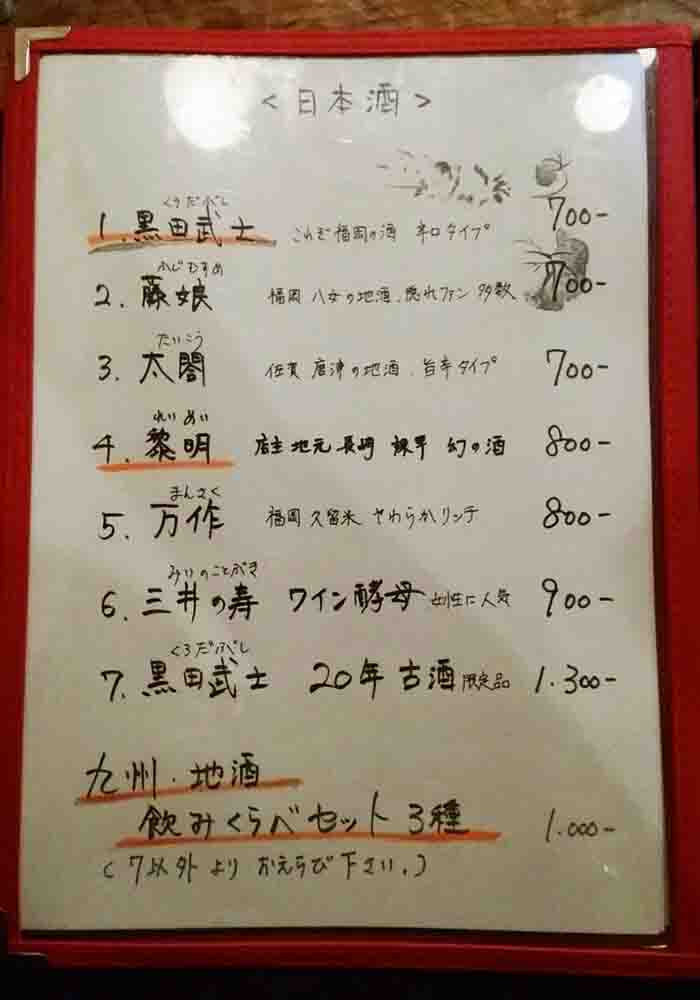 <日本酒>
くろだぶし
1. 黒田武士 これぞ福岡の酒 辛口タイプ 700-
ふじむすめ
2. 藤娘 福岡 八女の地酒、隠れファン多数 700-
たいこう
3. 太閤 佐賀 唐津の地酒、旨辛タイプ 700-
れいめい
4. 黎明 店主地元 長崎 諫早 幻の酒 800-
まんさく
5. 万作 福岡 久留米 やわらかリッチ 800-
みいのことぶき
6. 三井の寿 ワイン酵母 女性に人気 900-
くろだぶし
7. 黒田武士 20年 古酒 限定品 1.300-
九州・地酒
飲みくらべセット 3種 1.000-
(7以外より おえらび下さい。)